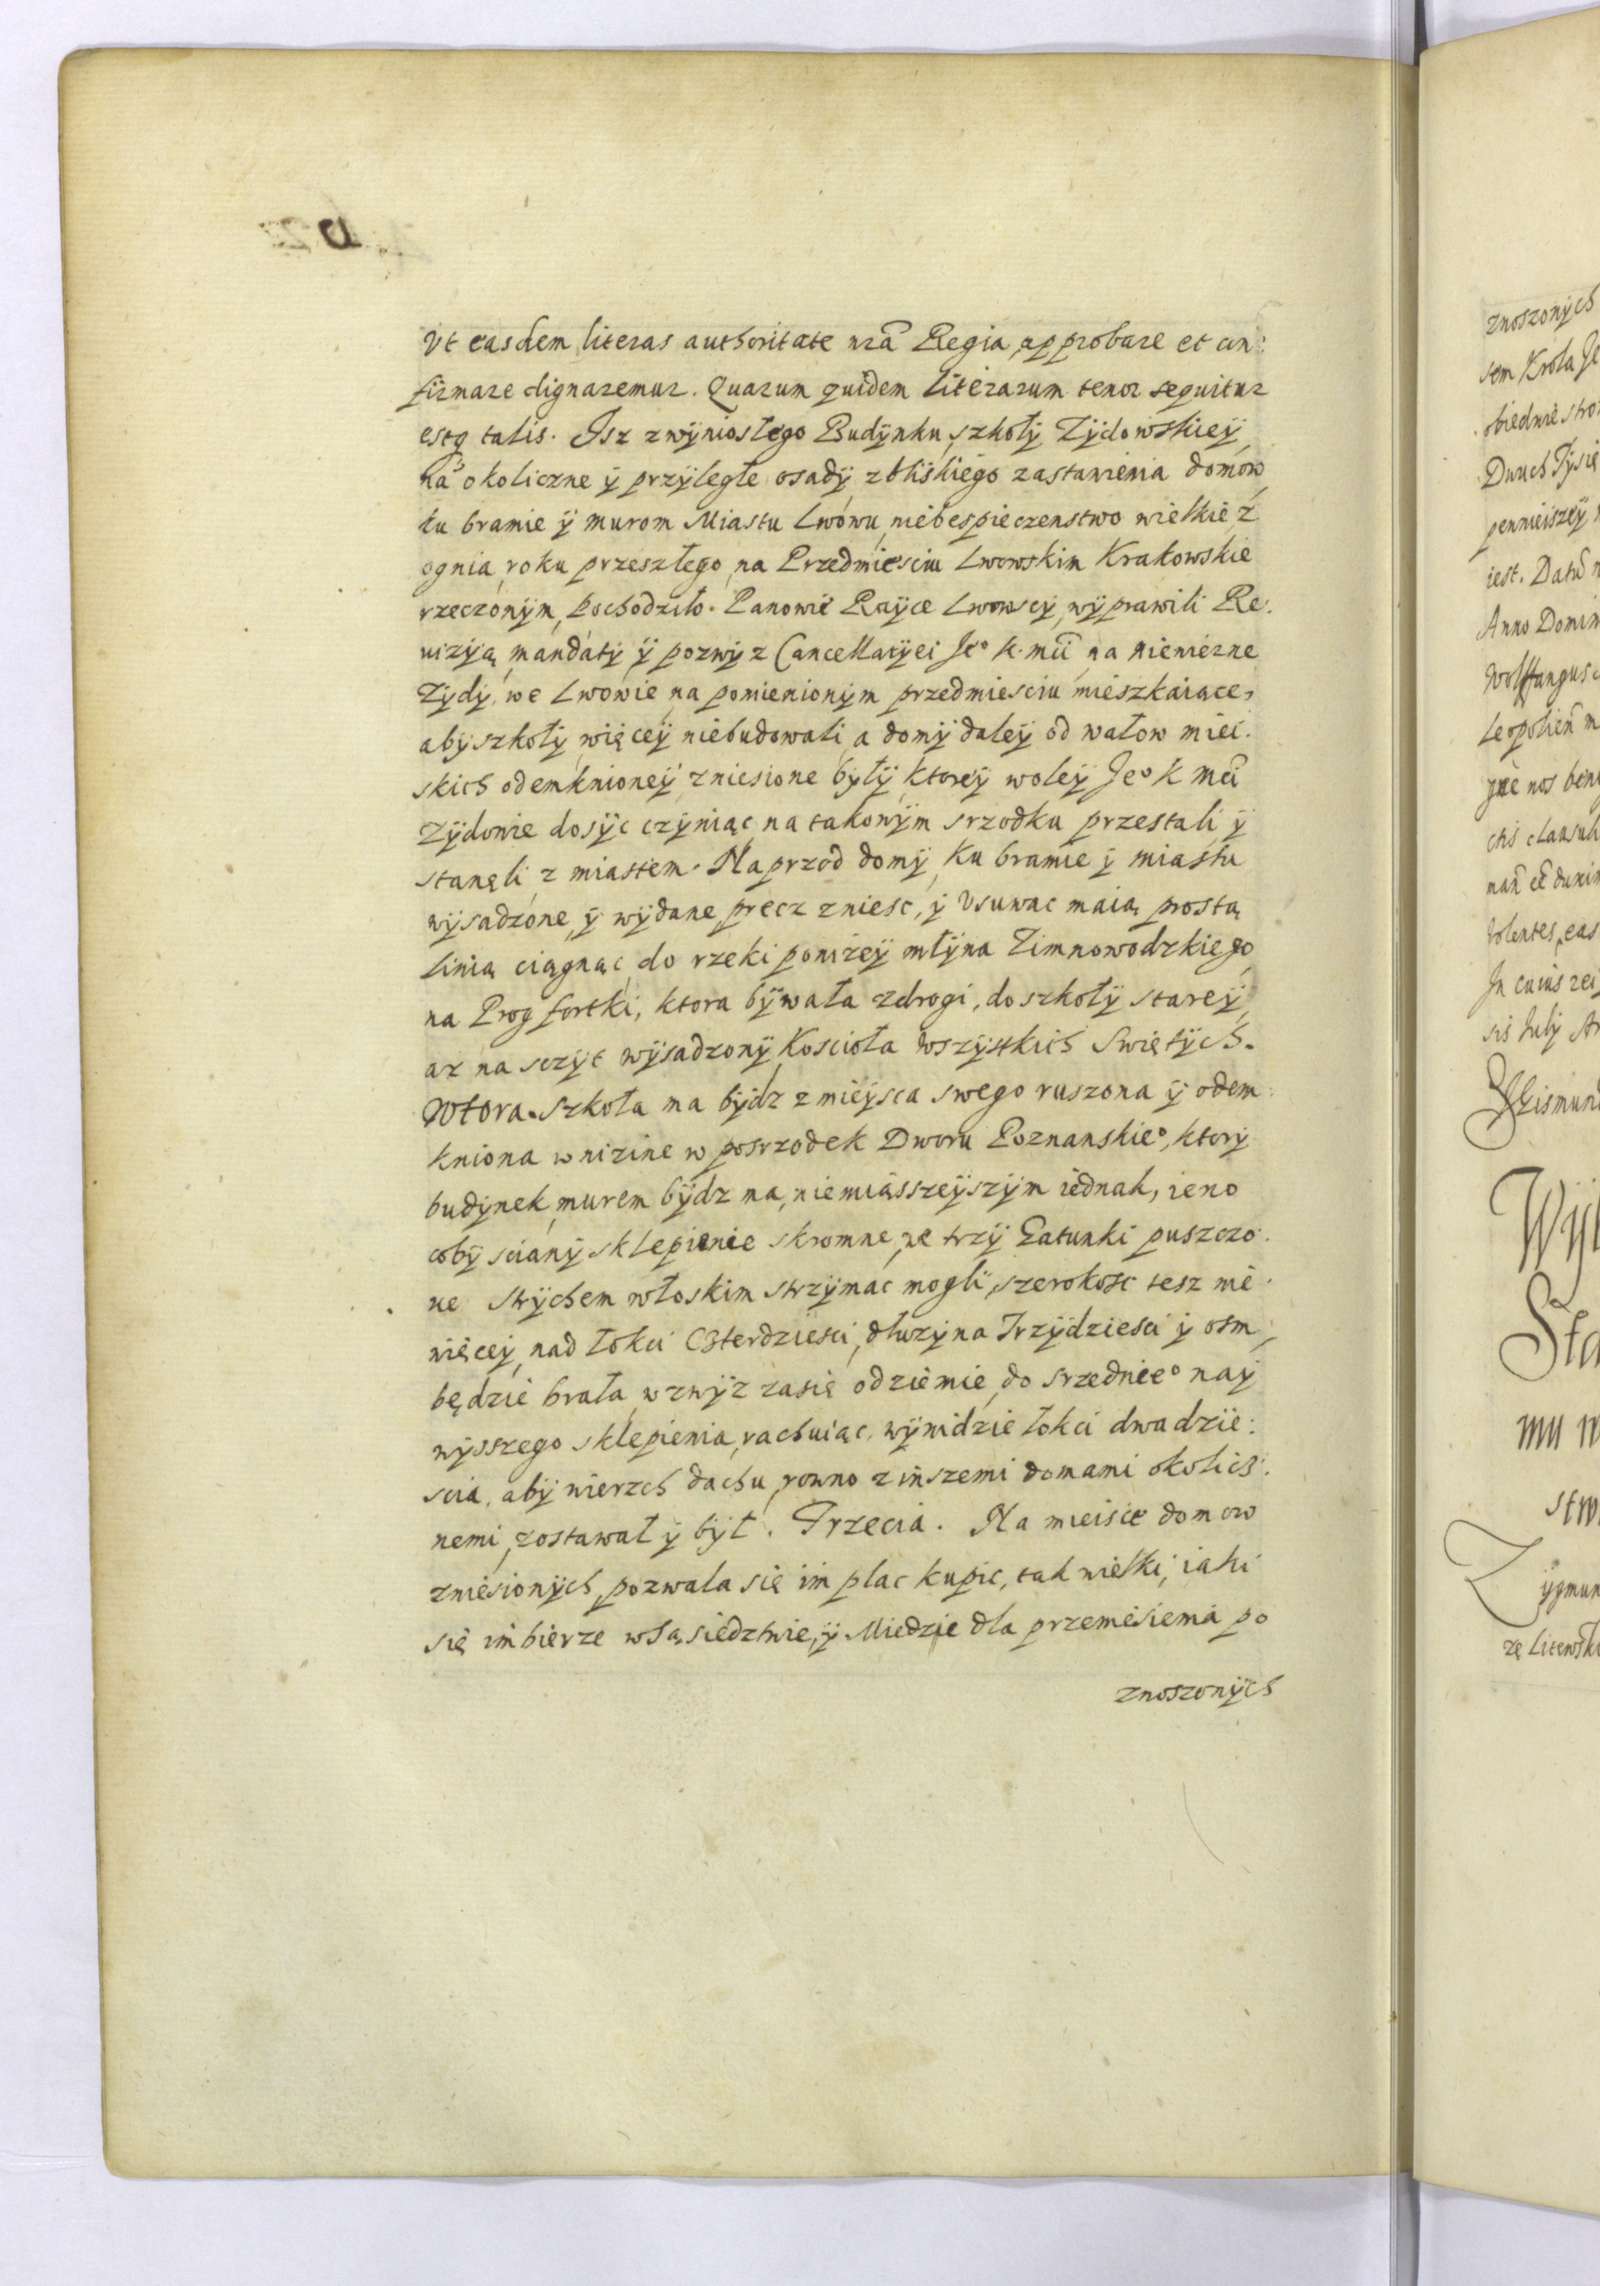 Vt easdem literas authoritate nrã Regia approbare et con:
firmare dignaremur. Quarum quidem literarum tenor sequitur
estq talis. Isz zwyniosłego Budynku szkoły Zydowskiey
na okoliczne y przyległe osady zbliskiego zastawienia domow
ku bramie y murom Miastu Lwowu, niebespieczenstwo wielkie z
ognia roku przeszłego, na Przedmiesciu Lwowskim Krakowskie
rzeczonym, pochodziło. Panowie Rayce Lwowscy, wyprawili Re:
wizyą mandaty y pozwy z Cancellaryei Jeº K. mci na niewierne
Zydy, we Lwowie na pomienionym przedmiesciu mieszkaiące,
aby szkoły więcey niebudowali a domy daley od wałow miei:
skich odemknioney zniesione były, ktorey woley Jeº K Mci
Zydowie dosyc czyniąc na takowym srzodku przestali y
stanęli z miastem. Naprzod domy ku bramie y miastu
wysadzone y wydane precz zniesc, y Vsuwac maią prostą
linią ciągnąc do rzeki poniżey młyna Zimnowodzkiego
na Prog fortki, ktora bywała zdrogi, do szkoły starey
az na sczyt wysadzony Kosciola Wszystkich Swiętych.
Wtora. Szkoła ma bydz z mieysca swego ruszona y odem:
kniona w nizine w posrzodek Dworu Poznanskieº, ktory
budynek murem bydz ma, niemiąsszeyszym iednak, ieno
coby sciany sklepienie skromne, we trzy Gatunki puszczo:
ne strychem włoskim strzymac mogli, szerokosc tesz nie
więcey nad łokci Czterdziesci, dłużyna Trzydziesci y osm
będzie brała, wzwyz zasię odziemie do srzednieeº nay
wysszego sklepienia rachuiąc, wynidzie łokci dwadzie:
scia, aby wierzch dachu rowno z inszemi domami okolicz:
nemi, zostawał y był. Trzecia. Na mieisce domow
zniesionych pozwala się im plac kupic, tak wielki, iaki
się im bierze w Sąsiedztwie, y Miedzie dla przeniesienia po
znoszonych
znoszonych
sem Krola Je
obiedwie stro
Dwuch Tysię
iest. Datũ
Anno Domin
ctis clausul
Volentes, eas
In cuius rei
sis July
Zygmun